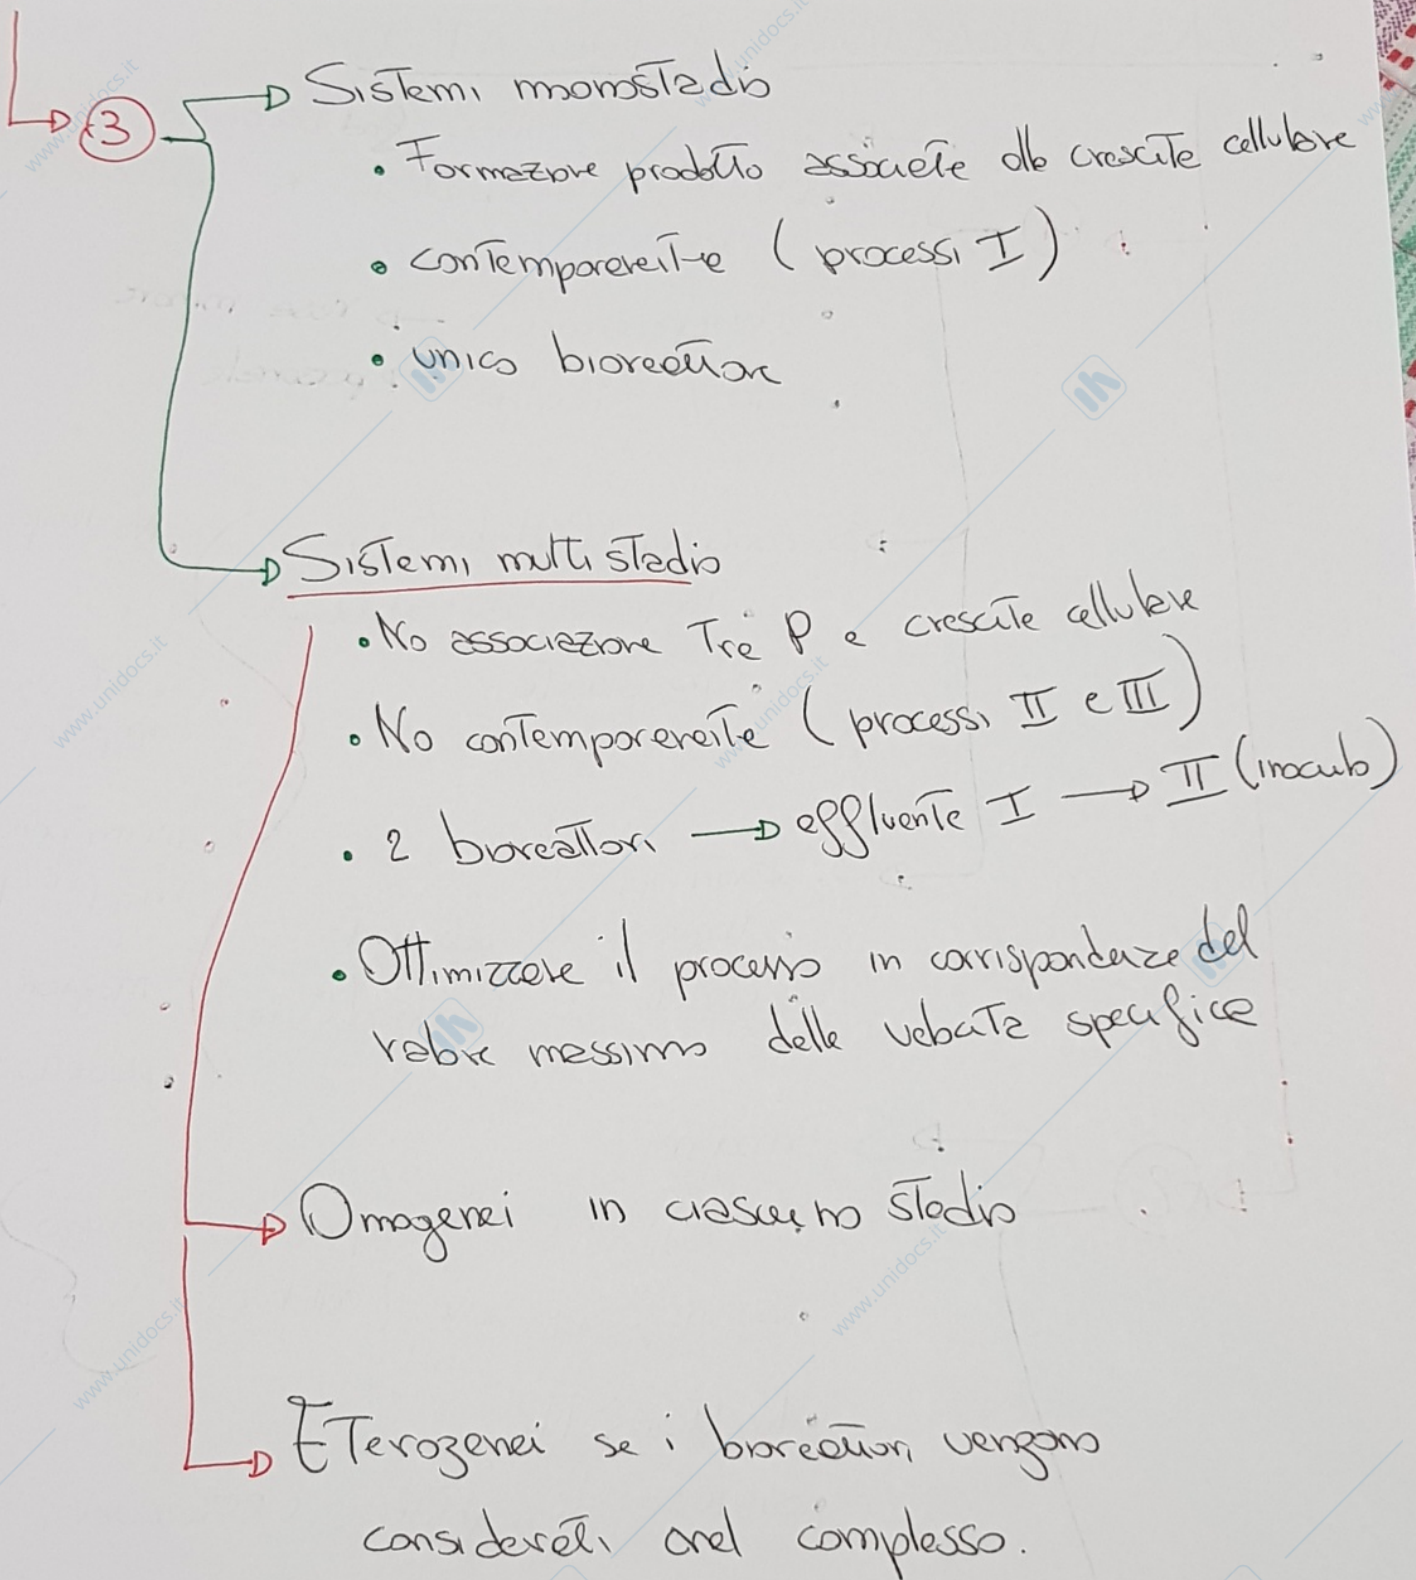 3
Sistemi monostadio
• Formazione prodotto associata alla crescita cellulare
• contemporaneità (processi I)
• unico bioreattore
Sistemi multi stadio
• No associazione Tra P e crescita cellulare
• No contemporaneità (processi II e III)
• 2 bioreattori → effluente I → II (inoculo)
• Ottimizzare il processo in corrispondenza del
valore massimo della velocità specifica
Omogenei in ciascuno stadio
Eterogenei se i bioreattori vengono
considerati nel complesso.
www.unidocs.it